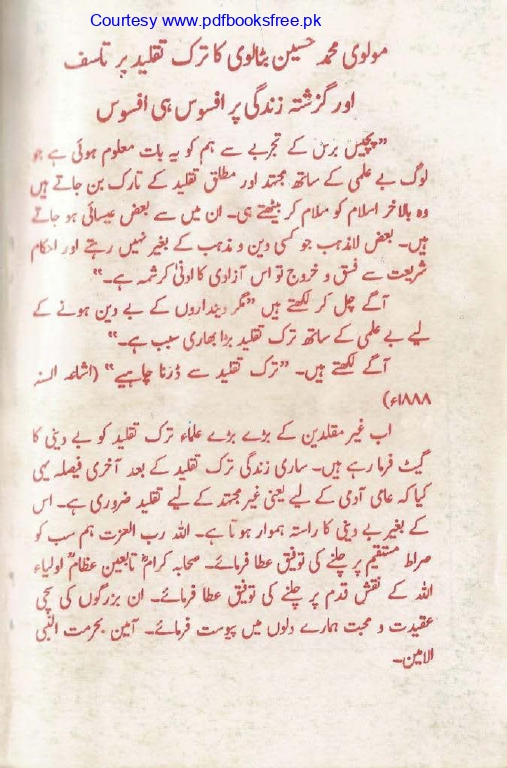 Courtesy www.pdfbooksfree.pk
مولوی محمد حسین بٹالوی کا ترک تقلید پر تاسف
اور گزشتہ زندگی پر افسوس ہی افسوس
”پچیس برس کے تجربے سے ہم کو یہ بات معلوم ہوئی ہے جو
لوگ بے علمی کے ساتھ مجتہد اور مطلق تقلید کے تارک بن جاتے ہیں
وہ بالاخر اسلام کو سلام کر بیٹھتے ہی۔ ان میں سے بعض عیسائی ہو جاتے
ہیں۔ بعض لامذہب جو کسی دین و مذہب کے بغیر نہیں رہتے اور احکام
شریعت سے فسق و خروج تو اس آزادی کا ادنیٰ کرشمہ ہے۔“
آگے چل کر لکھتے ہیں ”مگر دینداروں کے بے دین ہونے کے
لیے بے علمی کے ساتھ ترک تقلید بڑا بھاری سبب ہے۔“
آگے لکھتے ہیں۔ ”ترک تقلید سے ڈرنا چاہیے“ (اشاعۃ السنہ
۱۸۸۸ء)
اب غیر مقلدین کے بڑے بڑے علماء ترک تقلید کو بے دینی کا
گیٹ فرما رہے ہیں۔ ساری زندگی ترک تقلید کے بعد آخری فیصلہ یہی
کیا کہ عامی آدی کے لیے یعنی غیر مجتہد کے لیے تقلید ضروری ہے۔ اس
کے بغیر بے دینی کا راستہ ہموار ہوتا ہے۔ اللہ رب العزت ہم سب کو
صراط مستقیم پر چلنے کی توفیق عطا فرمائے۔ صحابہ کرامؓ تابعین عظامؒ اولیاء
اللہ کے نقش قدم پر چلنے کی توفیق عطا فرمائے۔ ان بزرگوں کی سچی
عقیدت و محبت ہمارے دلوں میں پیوست فرمائے۔ آمین بحرمت النبی
الامین۔